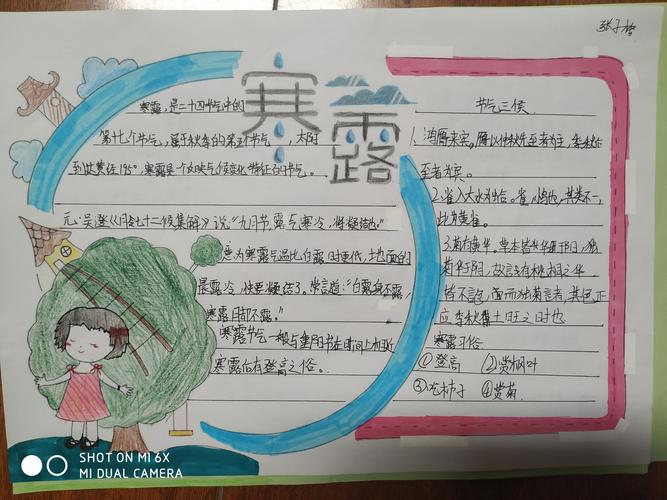 寒露
寒露,是二十四节气中的
第十七个节气,属于秋季的第五个节气,太阳
到达黄经195°,寒露是一个反映气候变化特征的节气。
元·吴澄《月令七十二候集解》说"九月节,露气寒冷,将凝结也。"
意为寒露气温比白露时更低,地面的
露冷,快要凝结了。常言道:"白露身不露,
寒露脚不露。"
寒露节气一般与重阳节在时间上相近
寒露后有登高之俗。
节气三候
1.鸿雁来宾。雁以仲秋先至者为主,季秋后
至者为宾。
2.雀入大水为蛤。雀,小鸟也,其类不一,
此为黄雀。
3.菊有黄华。草木皆华于阳,独
菊华于阴,故言有桃桐之华
皆不言,而独菊言者,其色正
应季秋土旺之时也
寒露习俗
①登高 ②赏枫叶
③吃柿子 ④赏菊
SHOT ON MI 6X
MI DUAL CAMERA